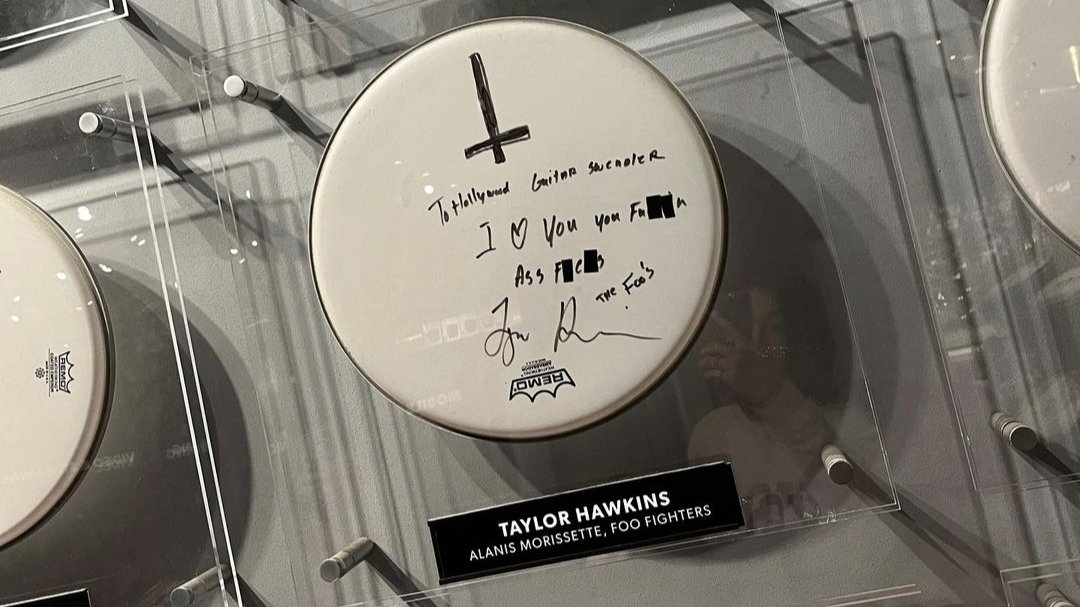 To Hollywood Guitar Sucnoler
I ♡ You you Fu██n
Ass F█c█s
THE Foo's
REMO
TAYLOR HAWKINS
ALANIS MORISSETTE, FOO FIGHTERS
REMO